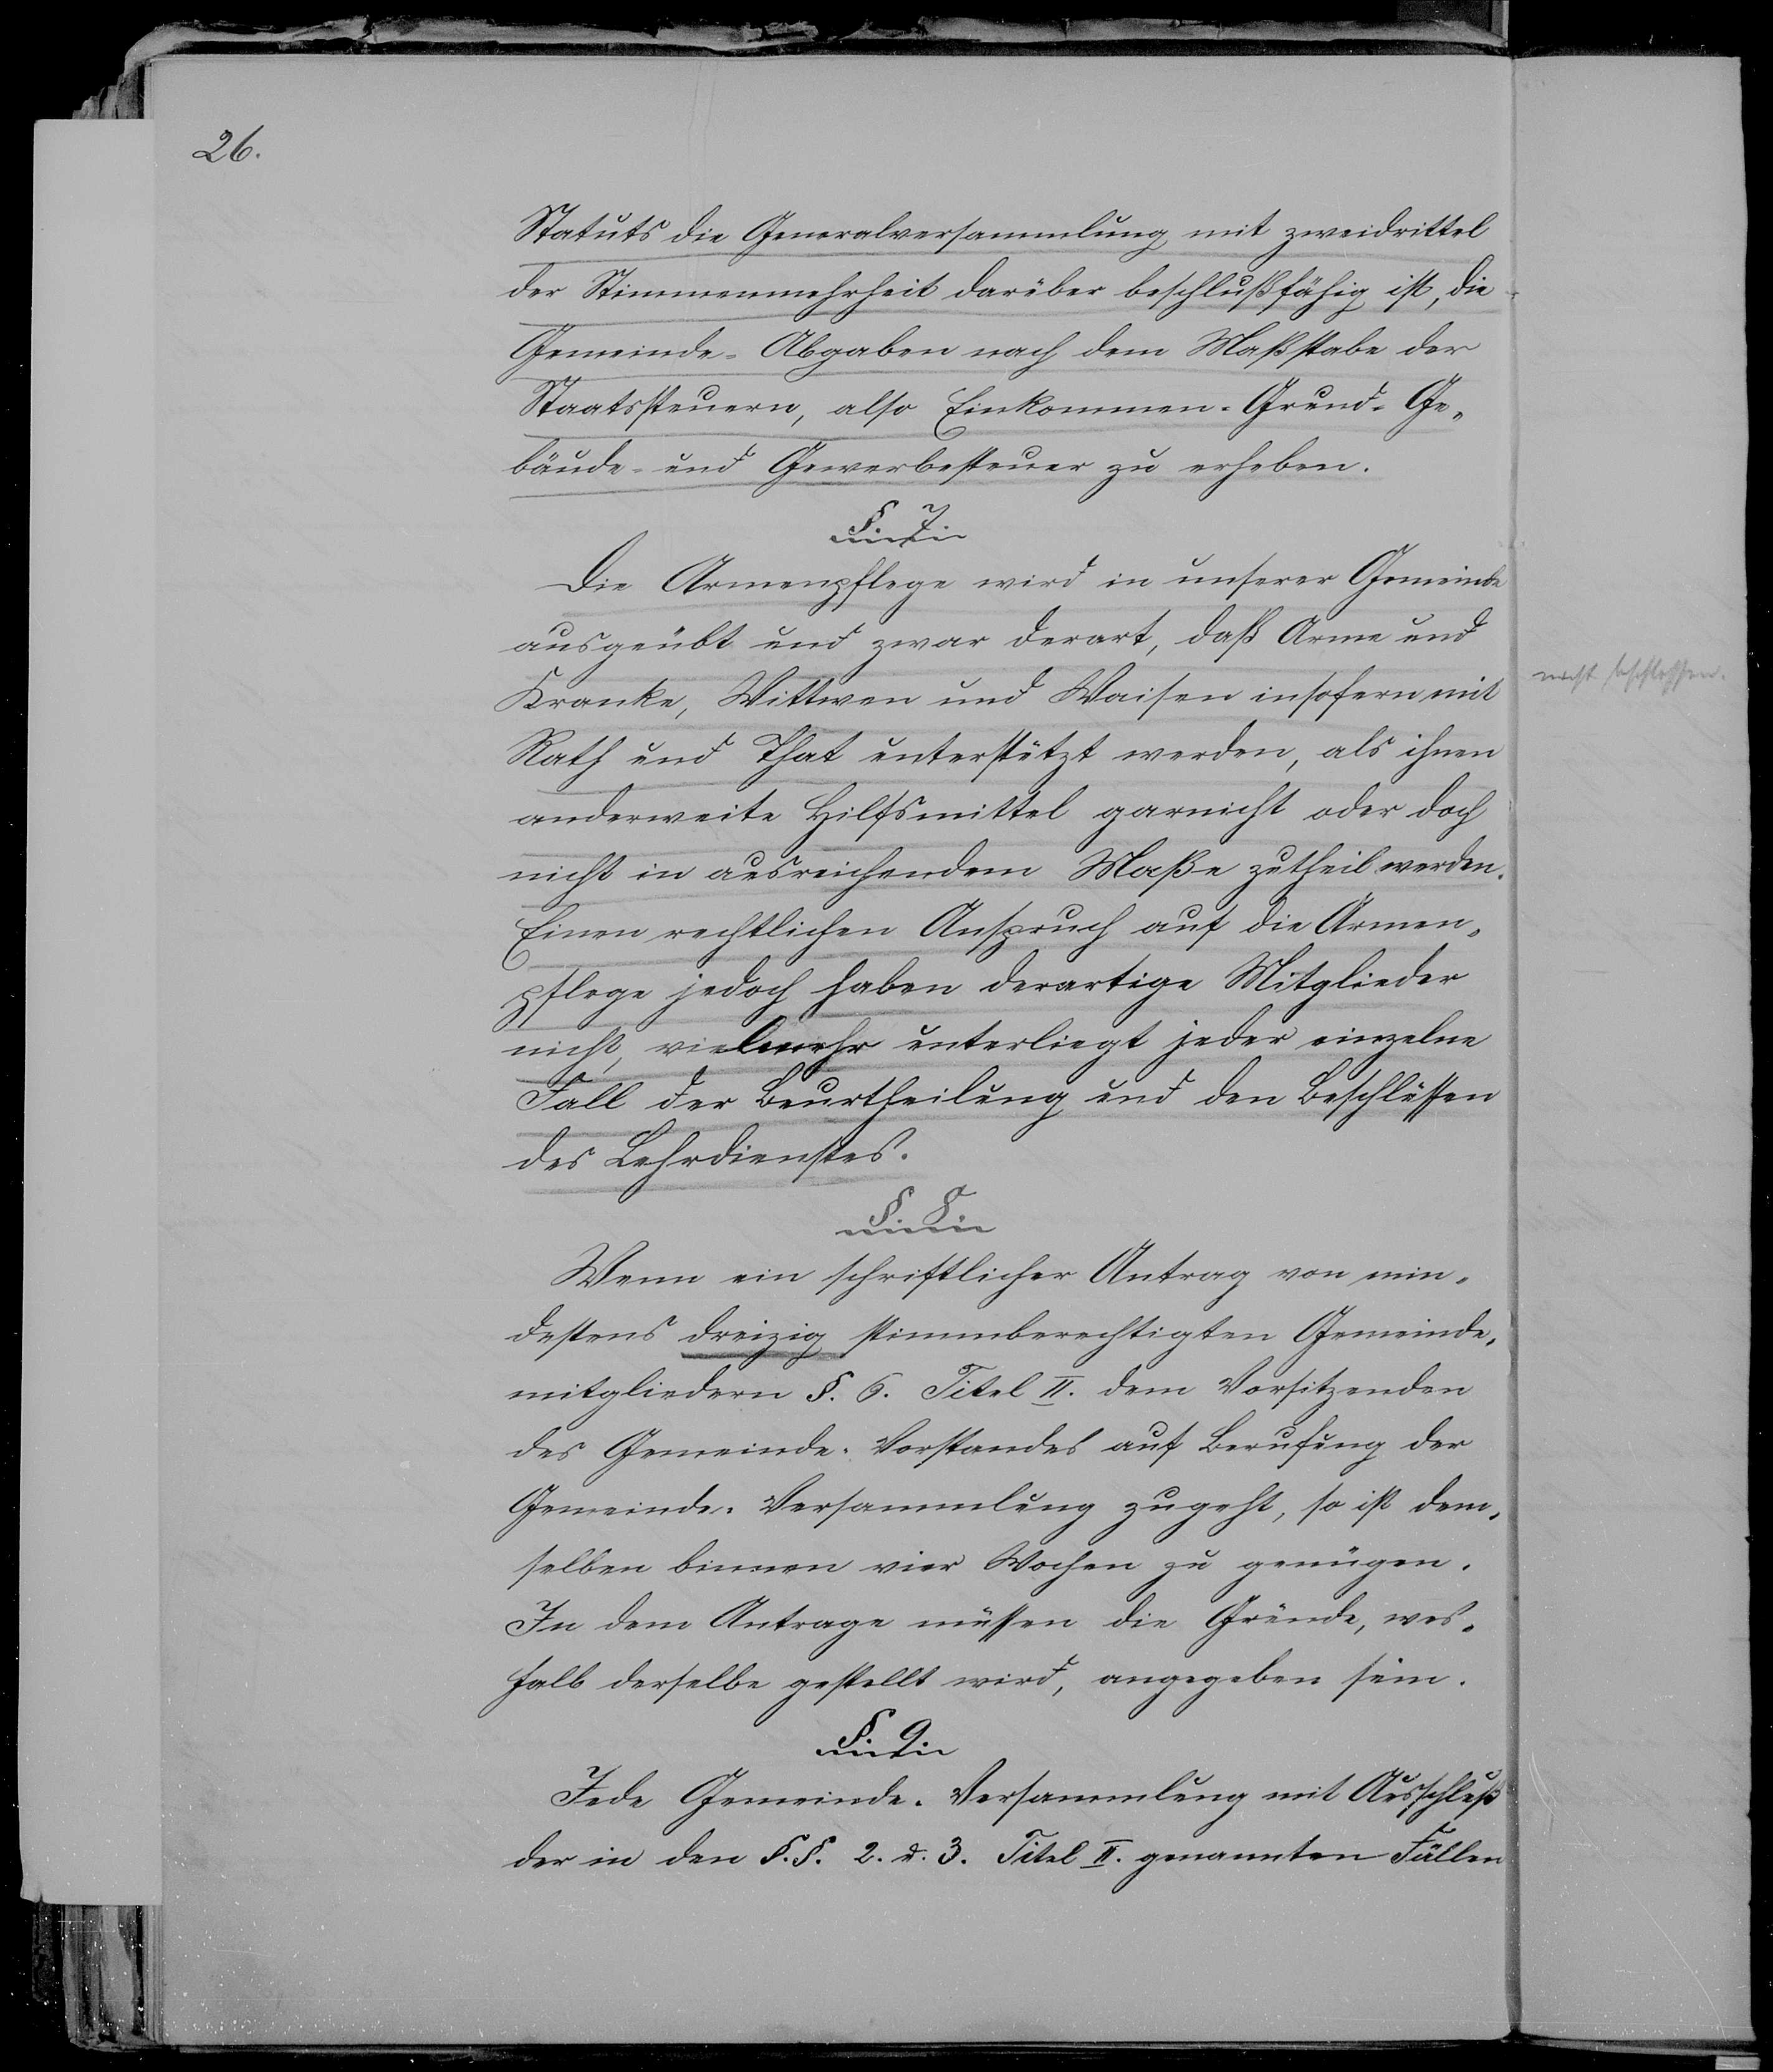 26.
Statuts die Generalversammlung mit zweidrittel
der Stimmenmehrheit darüber beschlußfähig ist, die
Gemeinde-Abgaben nach dem Maßstabe der
Staatssteuern, also Einkommen-Grund-Ge-
bäude- und Gewerbesteuer zu erheben.
§. 7.
Die Armenpflege wird in unserer Gemeinde
ausgeübt und zwar derart, daß Arme und
Kranke, Wittwen und Waisen insofern mit
Rath und That unterstützt werden, als ihnen
anderweite Hilfsmittel garnicht oder doch
nicht in ausreichendem Maße zutheil werden.
Einen rechtlichen Anspruch auf die Armen-
pflege jedoch haben derartige Mitglieder
nicht, vielmehr unterliegt jeder einzelne
Fall der Beurtheilung und den Beschlüssen
des Lehrdienstes.
nicht beschlossen.
§. 8.
Wenn ein schriftlicher Antrag von min-
destens dreizig stimmberechtigten Gemeinde-
mitgliedern §. 6. Titel II. dem Vorsitzenden
des Gemeinde-Vorstandes auf Berufung der
Gemeinde-Versammlung zugeht, so ist dem-
selben binnen vier Wochen zu genügen.
In dem Antrage müssen die Gründe, wes-
halb derselbe gestellt wird, angegeben sein.
§. 9.
Jede Gemeinde-Versammlung mit Ausschluß
der in den §.§. 2. u. 3. Titel II. genannten Fällen